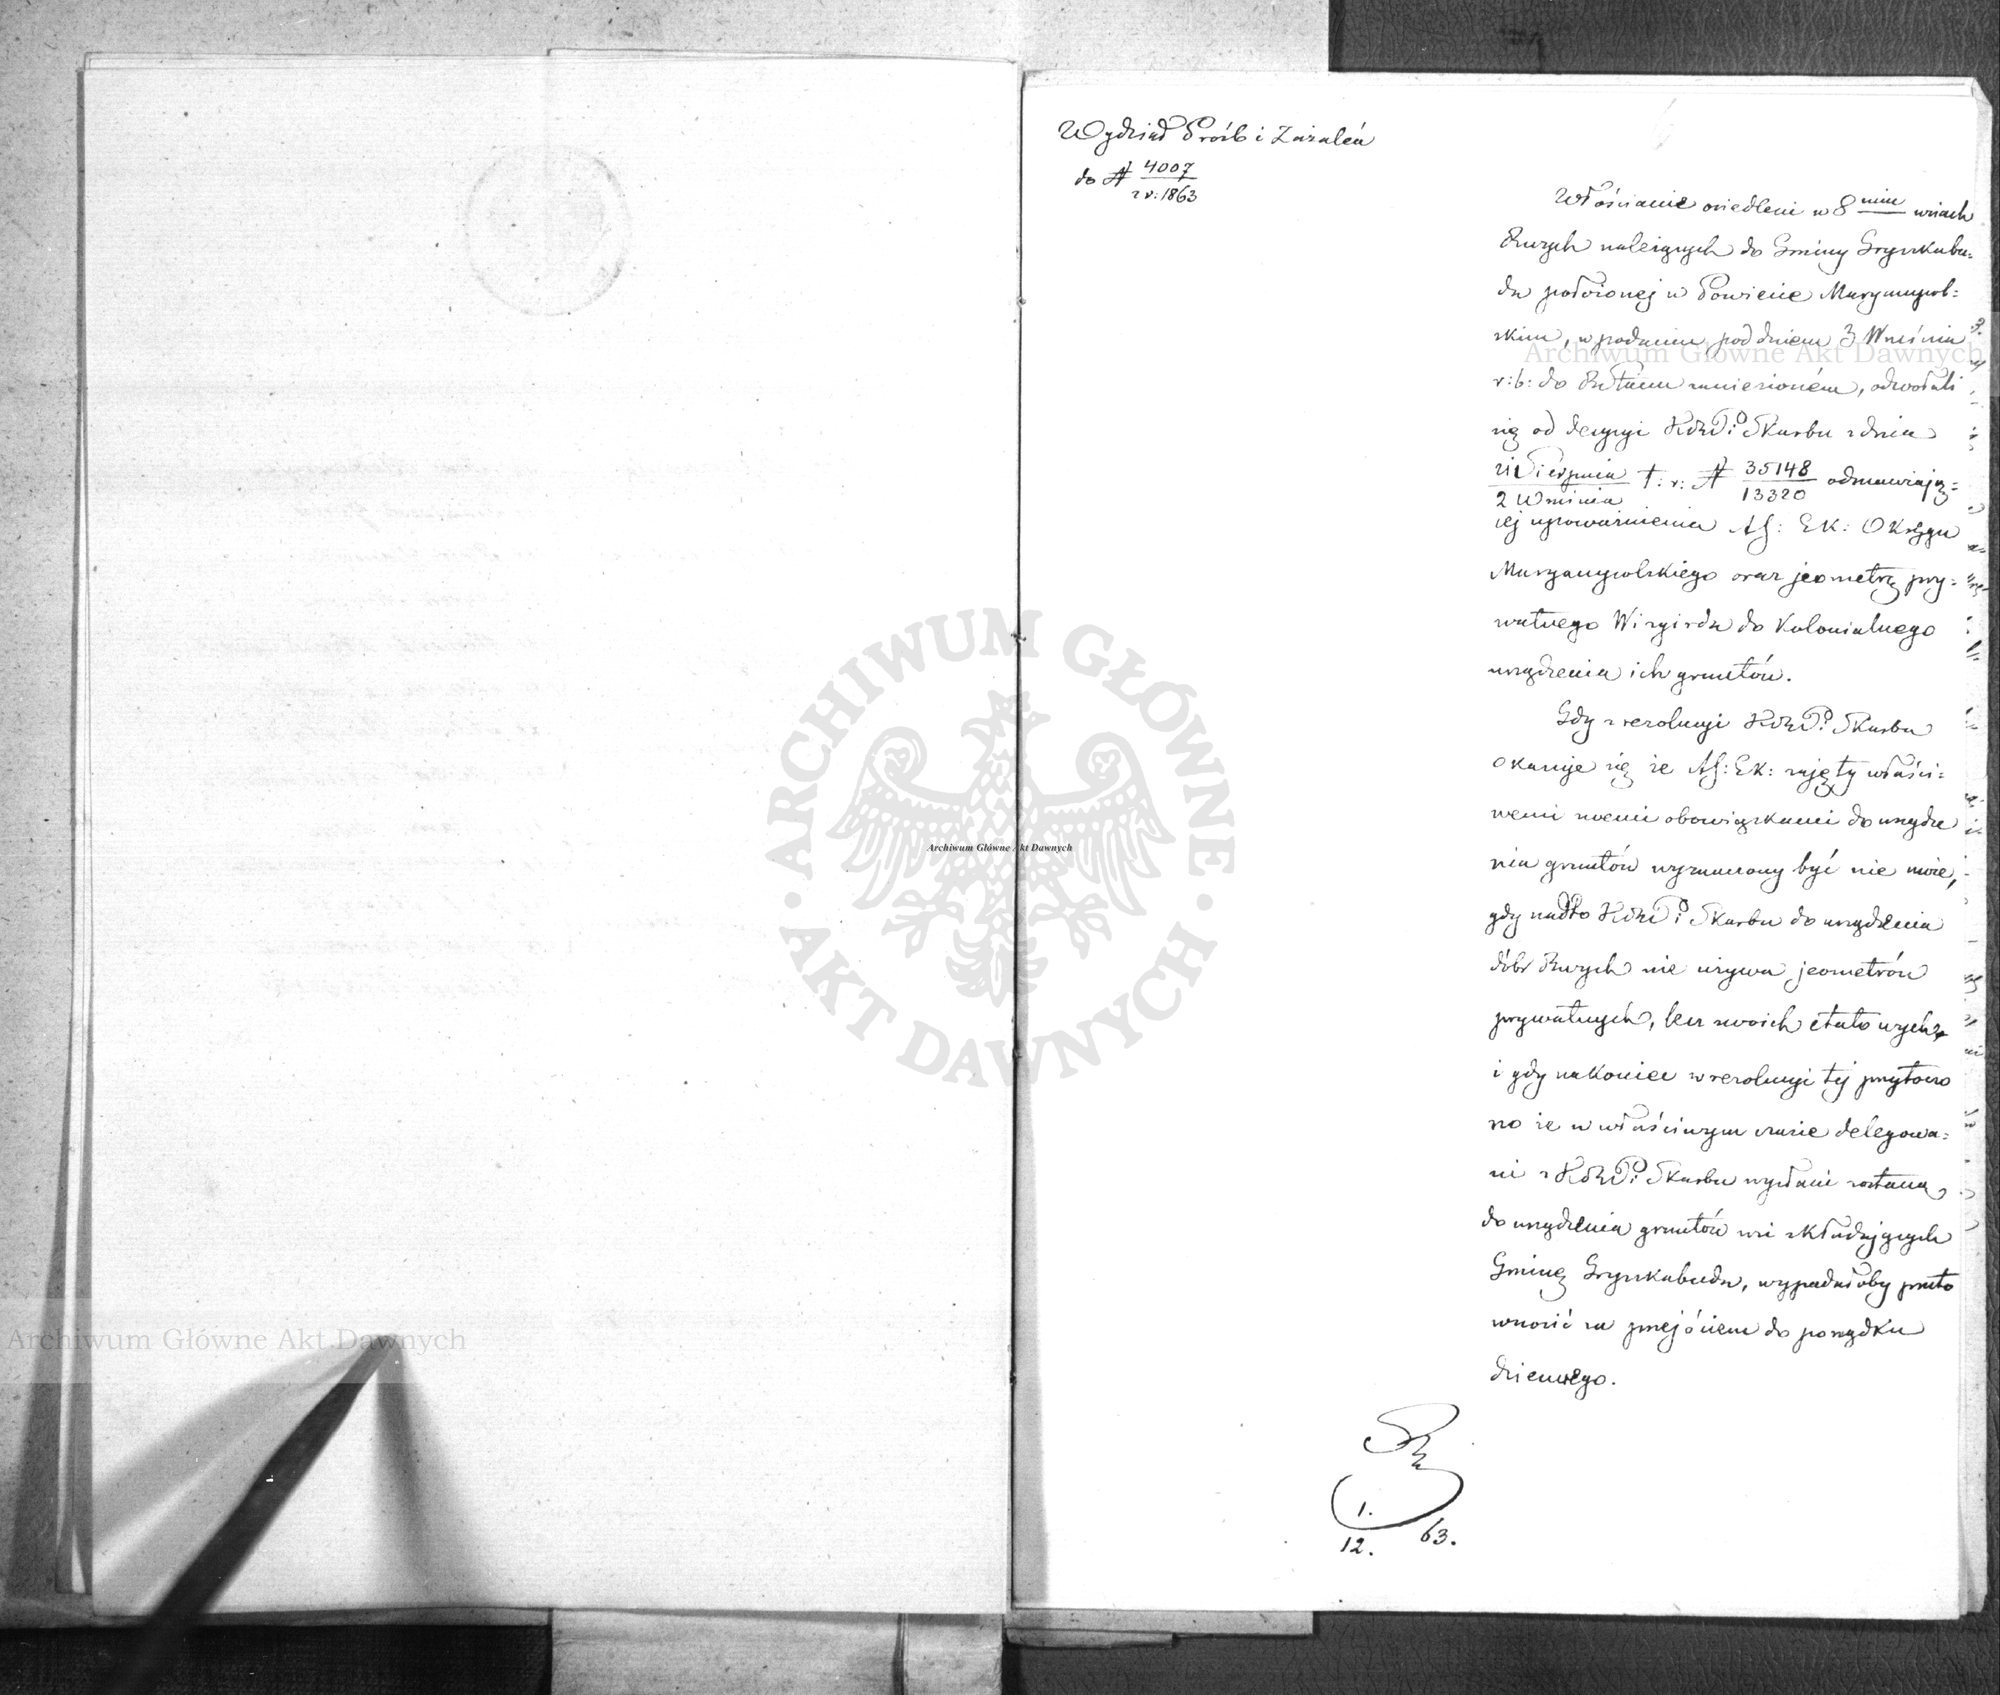 Wydział Próśb i Zażaleń
do N 4007
z r: 1863
Włościanie osiedleni w 8 miu wsiach
Rwych należących do Gminy Gryszkabu-
da położonej w Powiecie Maryampol-
skim, w podaniu pod dniem 3 Września
r: b: do Rstanu zaniesioném, odwołali
się od decyzyi KRPi Skarbu z dnia
21 Sierpnia / 2 Września t: r: N 35148 / 13320 odmawiają-
cej upoważnienia As: Ek: Okręgu
Maryampolskiego oraz jeometrę pry-
watnego Wizgirda do Kolonialnego
urządzenia ich gruntów.
Gdy z rezolucyi KRPi Skarbu
okazuje się że As: Ek: zajęty właści-
wemi swemi obowiązkami do urządze
nia gruntów wyznaczony być nie może,
gdy nadto KRPi Skarbu do urządzenia
dóbr Rwych nie używa jeometrów
prywatnych, lecz swoich etatowych
i gdy nakoniec w rezolucyi tej przytoczo
no że w właściwym czasie delegowa-
ni z KRPi Skarbu wysłani zostaną
do urządzenia gruntów wsi składających
Gminę Gryszkabuda, wypadałoby przeto
wnosić za przejściem do porządku
dziennego.
1.
12. 63.
Archiwum Główne Akt Dawnych
Archiwum Główne Akt Dawnych
Archiwum Główne Akt Dawnych
ARCHIWUM GŁÓWNE
AKT DAWNYCH